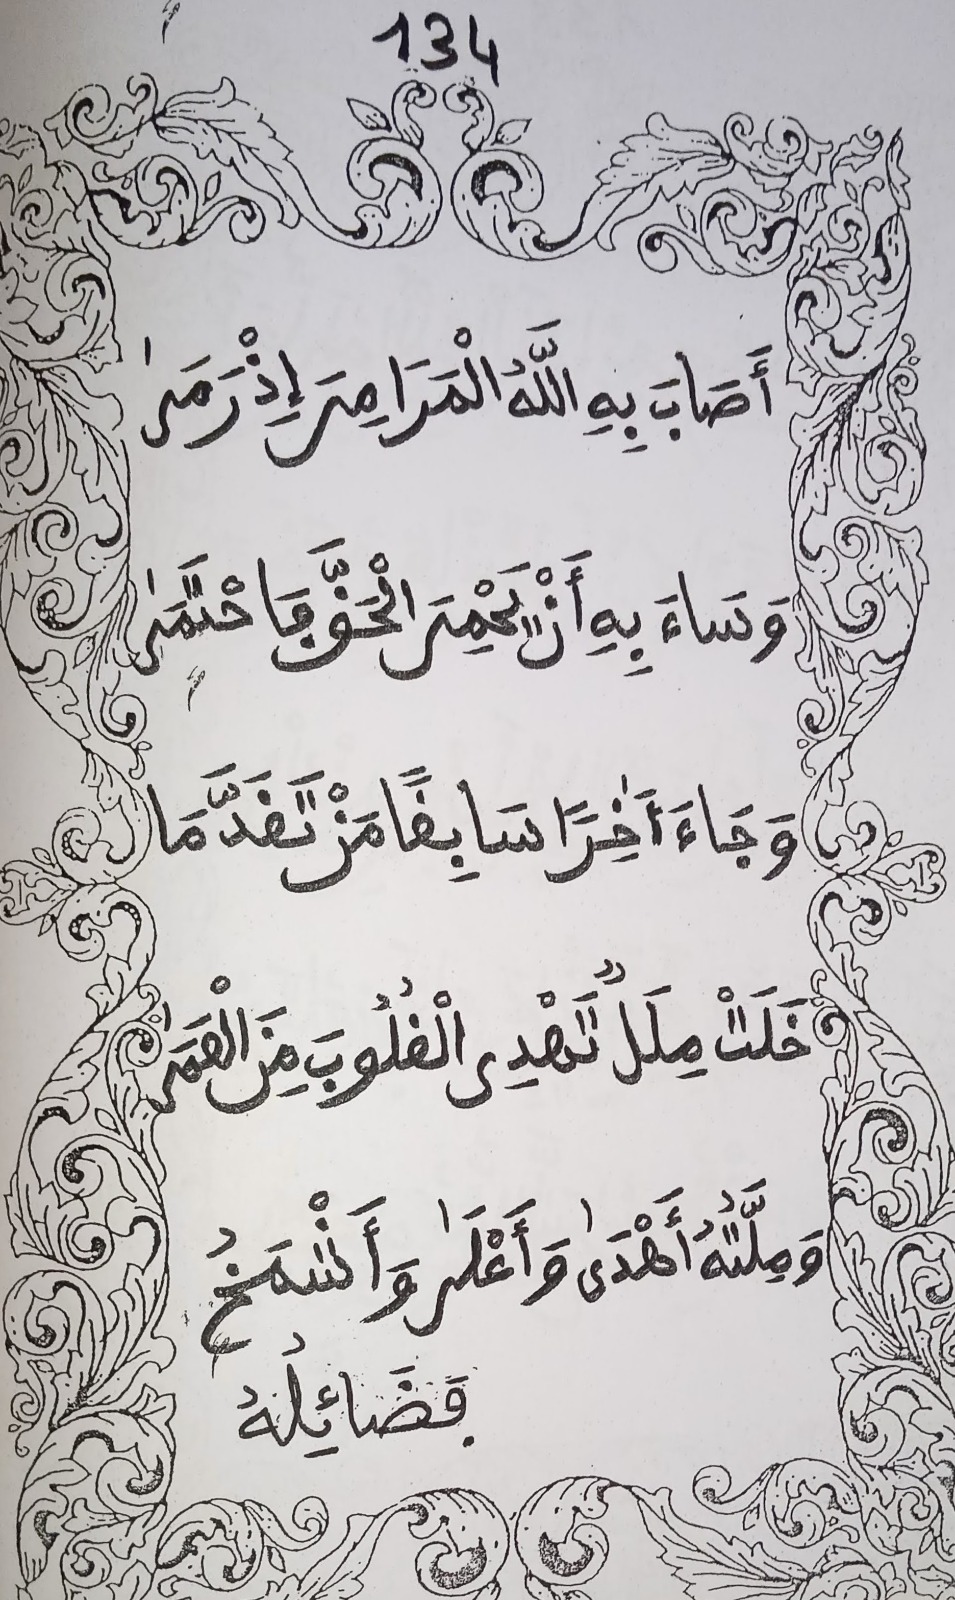 134
أَصَابَ بِهِ اللَّهُ الْمَرَامِيَ إِذْ رَمَىٰ
وَسَاءَ بِهِ أَنْ يَحْمِيَ الْحَقَّ فَاحْتَمَىٰ
وَجَاءَ أَٰخِرًا سَابِقًا مَنْ تَقَدَّمَا
خَلَتْ مِلَلٌ تَهْدِي الْقُلُوبَ مِنَ الْعَمَىٰ
وَمِلَّتُهُ أَهْدَىٰ وَأَعْلَىٰ وَأَشْمَخُ
فَضَائِلُهُ